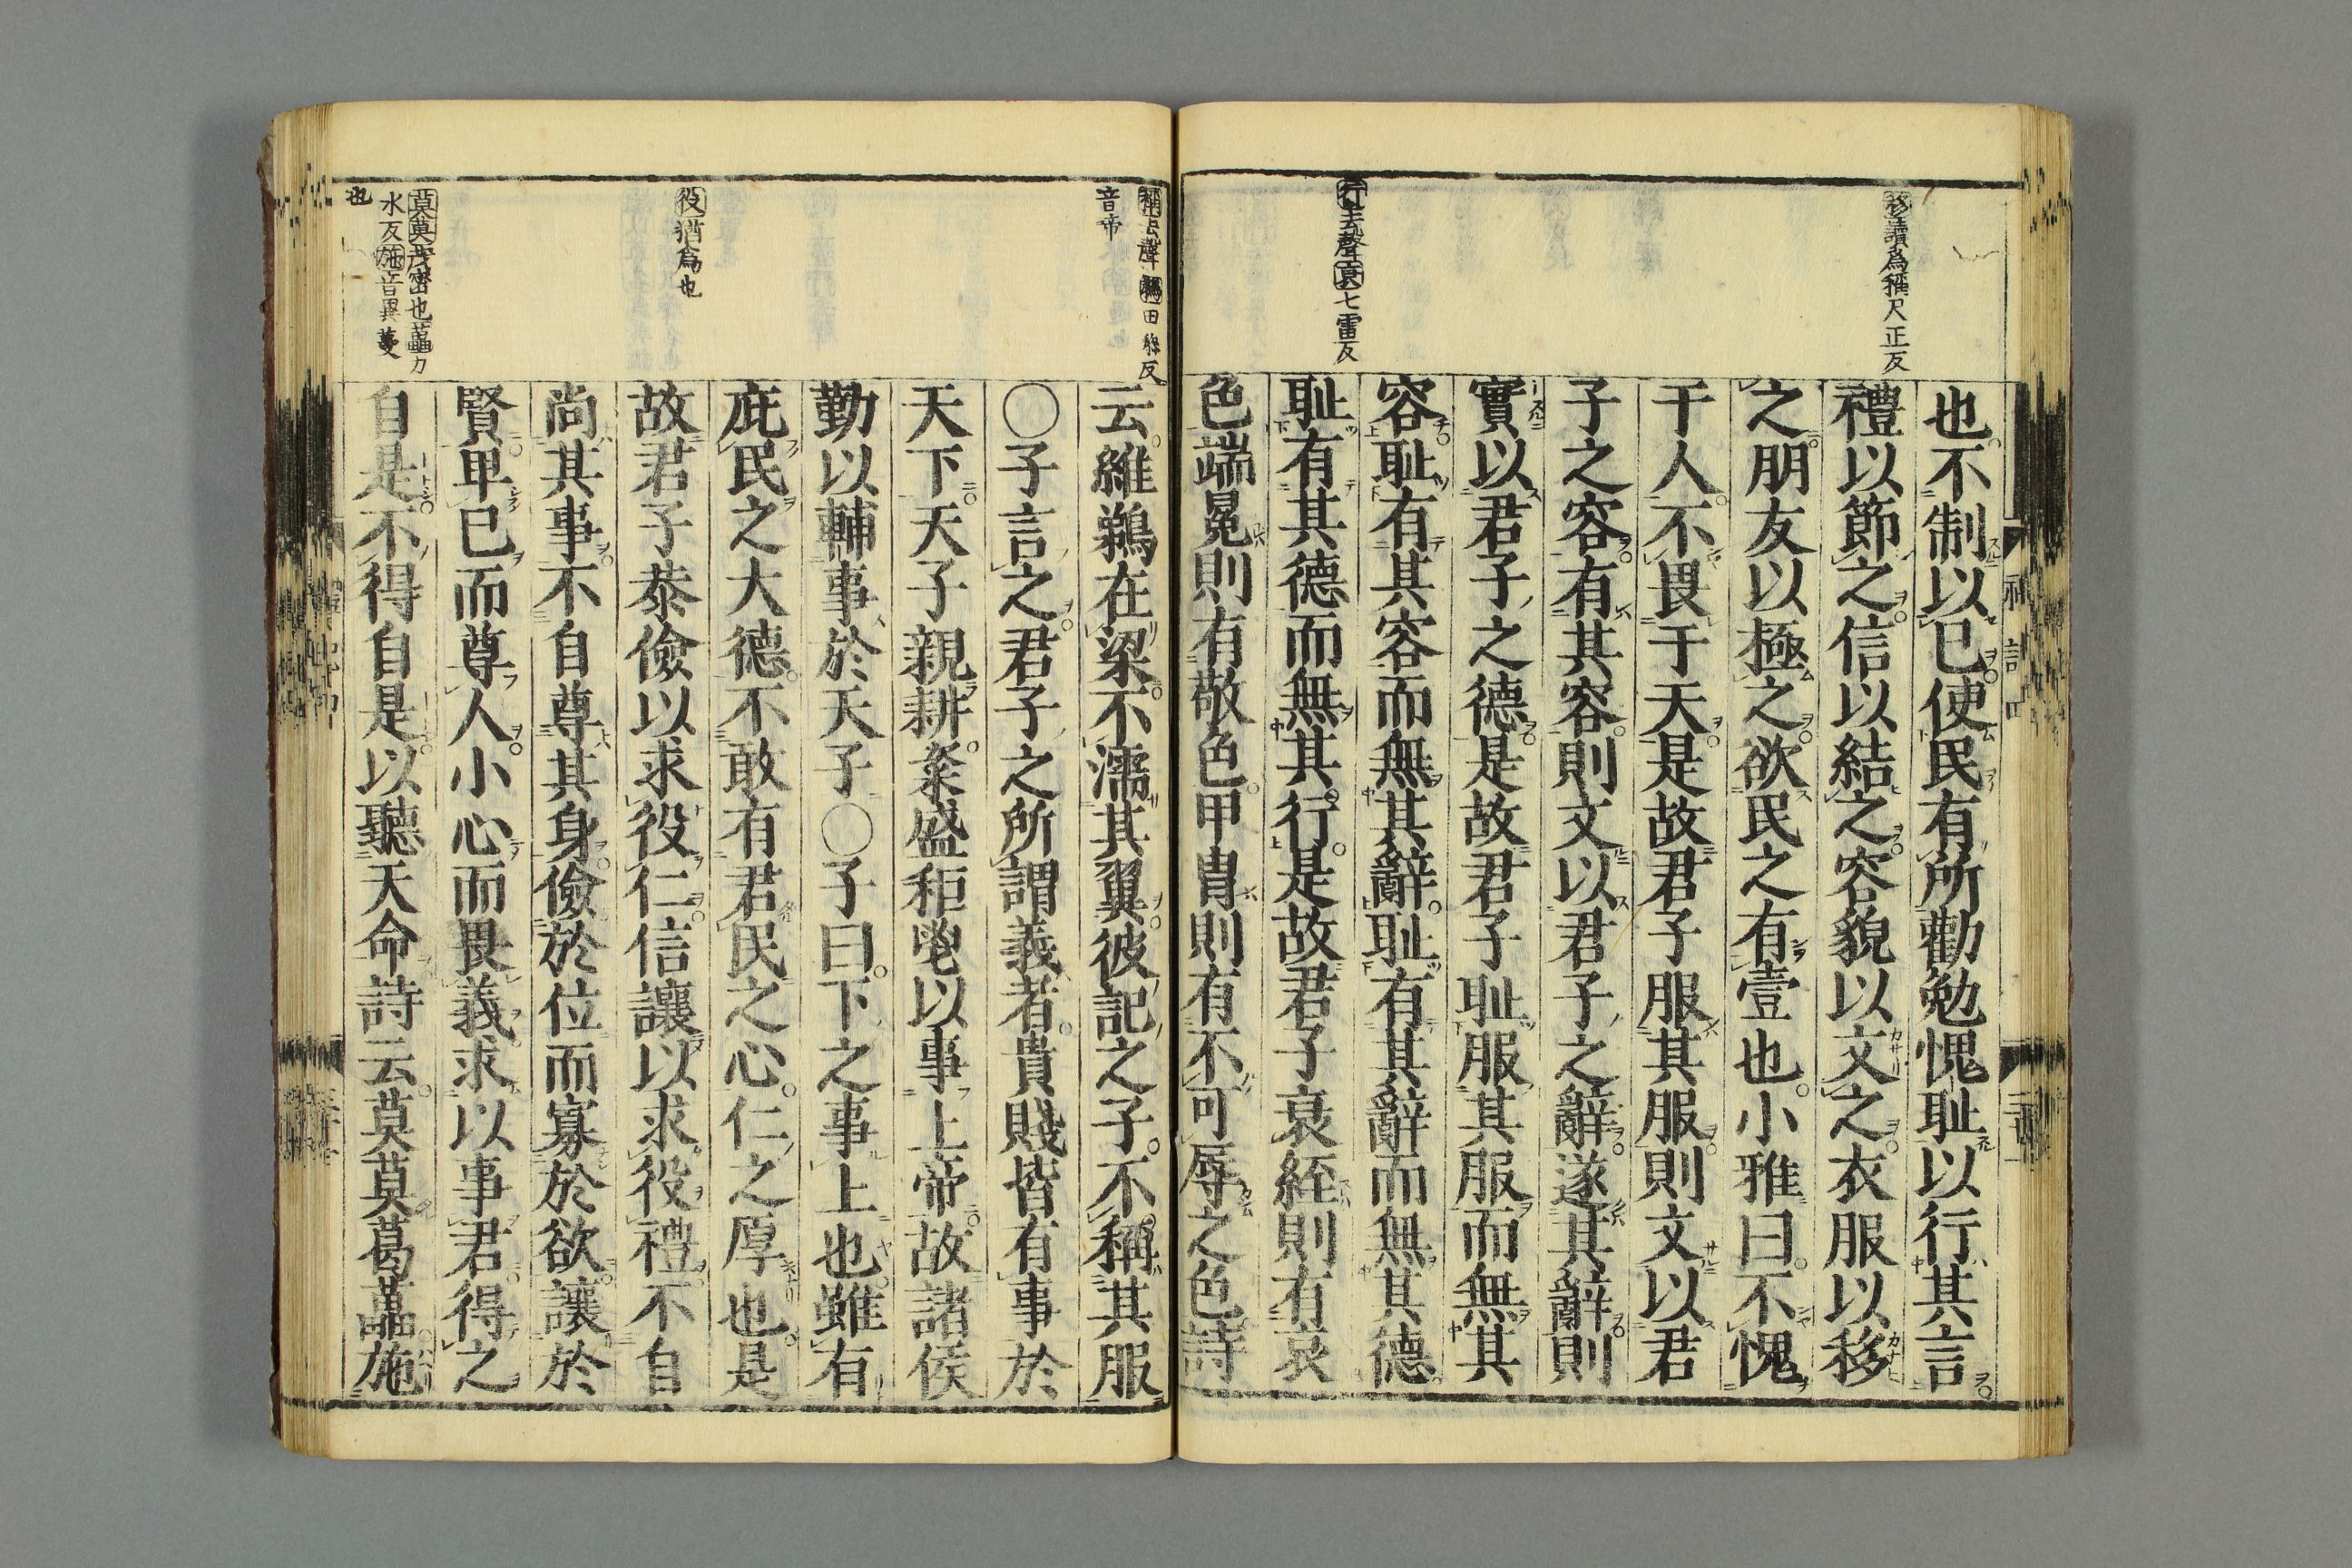 移讀爲稱尺正反
行去聲衰七雷反
也不制以已使民有所勸勉愧耻以行其言
禮以節之信以結之容貌以文之衣服以移
之朋友以極之欲民之有壹也小雅曰不愧
于人不畏于天是故君子服其服則文以君
子之容有其容則文以君子之辭遂其辭則
實以君子之德是故君子耻服其服而無其
容耻有其容而無其辭耻有其辭而無其德
耻有其德而無其行是故君子衰絰則有哀
色端冕則有敬色甲冑則有不可辱之色詩
稱去聲
音帝
役猶爲也
莫莫茂密也藟力
水反施音異蔓
也
云維鵜在梁不濡其翼彼記之子不稱其服
○子言之君子之所謂義者貴賤皆有事於
天下天子親耕粢盛秬鬯以事上帝故諸侯
勤以輔事於天子○子曰下之事上也雖有
庇民之大德不敢有君民之心仁之厚也是
故君子恭儉以求役仁信讓以求役禮不自
尚其事不自尊其身儉於位而寡於欲讓於
賢卑已而尊人小心而畏義求以事君得之
自是不得自是以聽天命詩云莫莫葛藟施